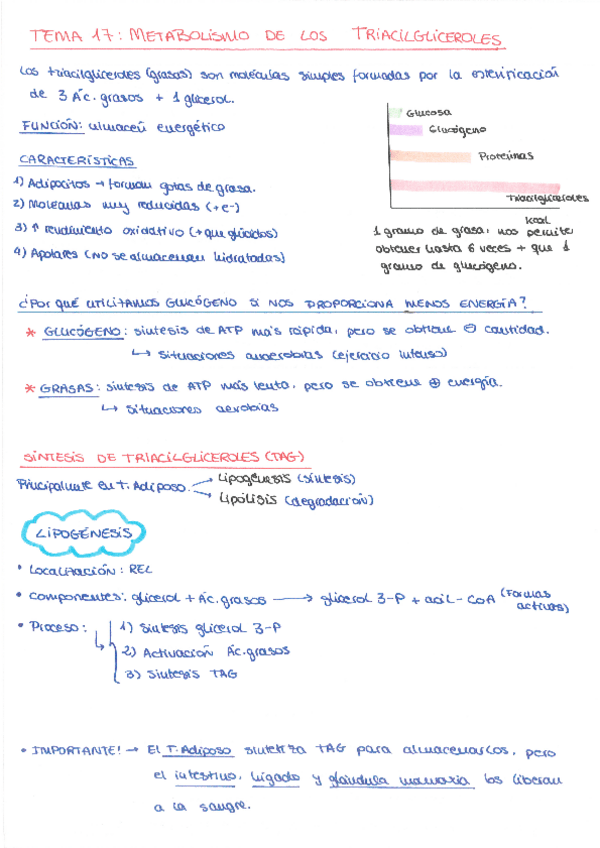 TEMA 17: METABOLISMO DE LOS TRIACILGLICEROLES
Los triacilgliceroles (grasas) son moléculas simples formadas por la esterificación
de 3 Ác. grasos + 1 glicerol.
FUNCIÓN: almacén energético
CARACTERÍSTICAS
1) Adipocitos → forman gotas de grasa.
2) Moléculas muy reducidas (+e-)
3) ↑ rendimiento oxidativo (+ que glúcidos)
4) Apolares (no se almacenan hidratadas)
Glucosa
Glucógeno
Proteínas
Triacilgliceroles
kcal
1 gramo de grasa, nos permite
obtener hasta 6 veces + que 1
gramo de glucógeno.
¿POR QUÉ UTILITAMOS GLUCÓGENO SI NOS PROPORCIONA MENOS ENERGÍA?
* GLUCÓGENO: síntesis de ATP más rápida, pero se obtiene ⊖ cantidad.
↳ situaciones anaerobias (ejercicio intenso)
* GRASAS: síntesis de ATP más lenta, pero se obtiene ⊕ energía.
↳ situaciones aerobias
SÍNTESIS DE TRIACILGLICEROLES (TAG)
Principalmente en T. Adiposo → Lipogénesis (síntesis)
→ Lipólisis (degradación)
LIPOGÉNESIS
• Localización: REL
• Componentes: glicerol + Ác. grasos → glicerol 3-P + acil-CoA (Formas
activas)
• Proceso: 1) Síntesis glicerol 3-P
↳ 2) Activación Ác. grasos
3) Síntesis TAG
• IMPORTANTE! → El T. Adiposo sintetiza TAG para almacenarlos, pero
el intestino, hígado y glándula mamaria los liberan
a la sangre.